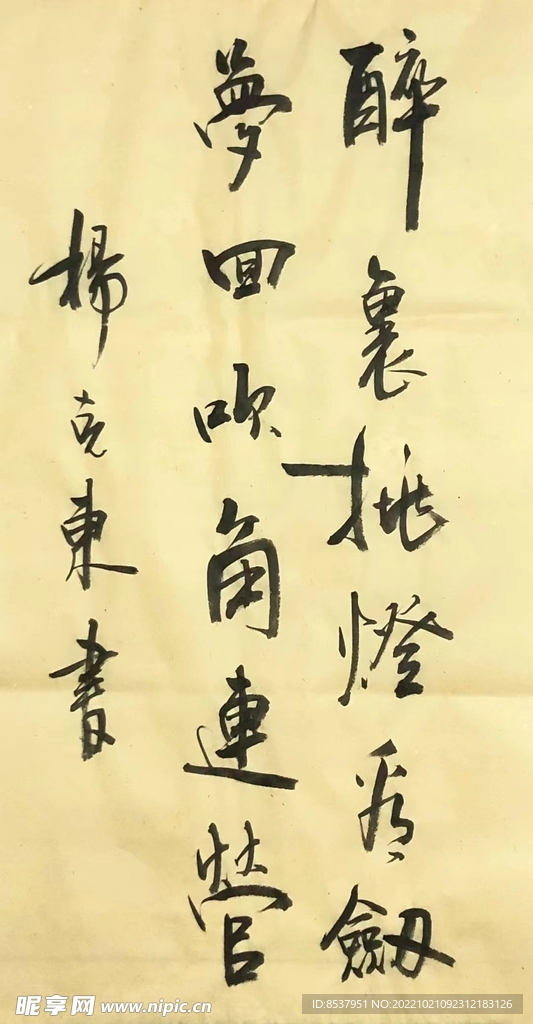 醉裏挑燈看劔
夢回吹角連營
楊克東書
昵享网 www.nipic.cn
ID:8537951 NO:20221021092312183126